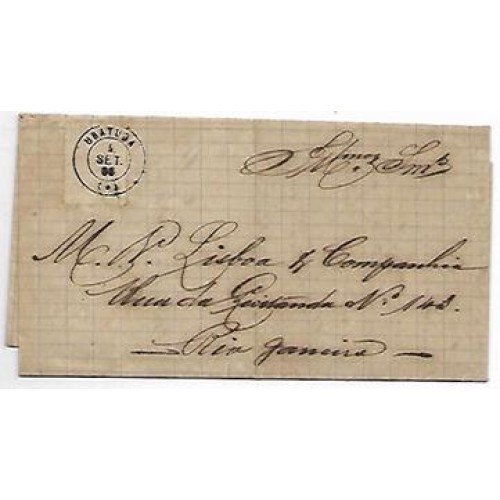 UBATUBA
4
SET.
86
Illmos. Snrs.
M. P. Lisboa & Companhia
Rua da Quitanda No. 142.
Rio Janeiro